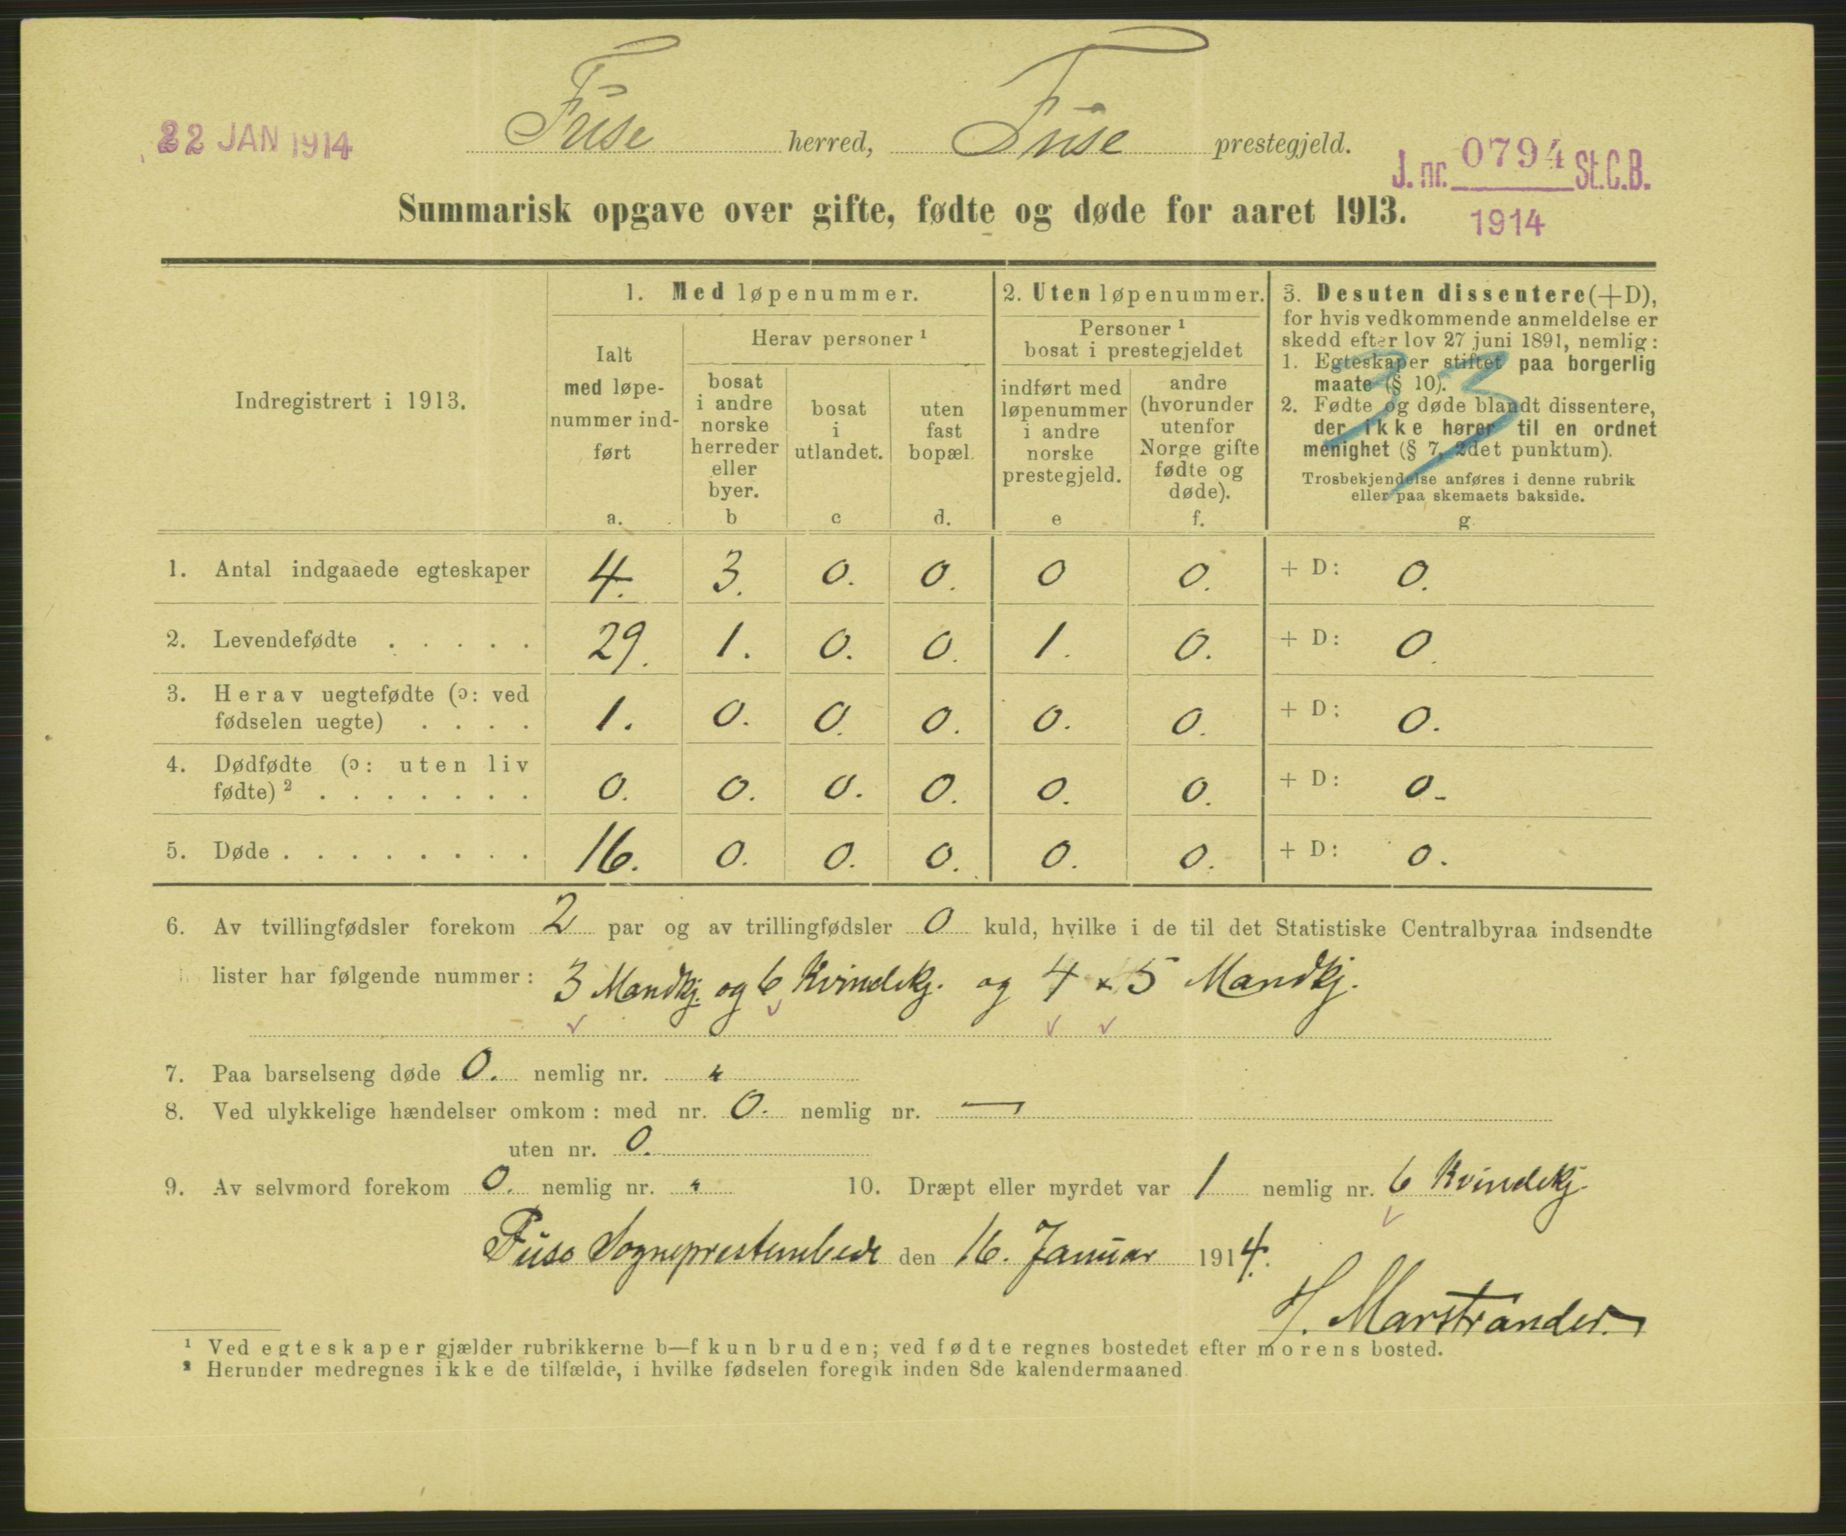 22 JAN 1914
Fuse herred, Fuse prestegjeld.
J. nr. 0794 St.C.B.
1914
Summarisk opgave over gifte, fødte og døde for aaret 1913.
Indregistrert i 1913.
1. Med løpenummer.
Ialt
med løpe-
nummer ind-
ført
a.
Herav personer ¹
bosat
i andre
norske
herreder
eller
byer.
b
bosat
i
utlandet.
c
uten
fast
bopæl.
d.
2. Uten løpenummer.
Personer ¹
bosat i prestegjeldet
indført med
løpenummer
i andre
norske
prestegjeld.
e
andre
(hvorunder
utenfor
Norge gifte
fødte og
døde).
f.
3. Desuten dissentere (+D),
for hvis vedkommende anmeldelse er
skedd efter lov 27 juni 1891, nemlig:
1. Egteskaper stiftet paa borgerlig
maate (§ 10).
2. Fødte og døde blandt dissentere,
der ikke hører til en ordnet
menighet (§ 7, 2det punktum).
Trosbekjendelse anføres i denne rubrik
eller paa skemaets bakside.
g
33
1. Antal indgaaede egteskaper 4. 3. 0. 0. 0 0. + D: 0.
2. Levendefødte . . . . . 29. 1. 0. 0. 1. 0. + D: 0.
3. Herav uegtefødte (ɔ: ved
fødselen uegte) . . . . 1. 0. 0. 0. 0. 0. + D: 0.
4. Dødfødte (ɔ: uten liv
fødte) ² . . . . . . . 0. 0. 0. 0. 0. 0. + D: 0.
5. Døde . . . . . . . . 16. 0. 0. 0. 0. 0. + D: 0.
6. Av tvillingfødsler forekom 2 par og av trillingfødsler 0 kuld, hvilke i de til det Statistiske Centralbyraa indsendte
lister har følgende nummer: 3 Mandkj. og 6 Kvindekj. og 4 × 5 Mandkj.
7. Paa barselseng døde 0. nemlig nr. "
8. Ved ulykkelige hændelser omkom: med nr. 0. nemlig nr. —
uten nr. 0.
9. Av selvmord forekom 0. nemlig nr. " 10. Dræpt eller myrdet var 1 nemlig nr. 6 Kvindekj.
Fuse Sogneprestembede den 16. Januar 1914.
H. Marstrander.
¹ Ved egteskaper gjælder rubrikkerne b—f kun bruden; ved fødte regnes bostedet efter morens bosted.
² Herunder medregnes ikke de tilfælde, i hvilke fødselen foregik inden 8de kalendermaaned.